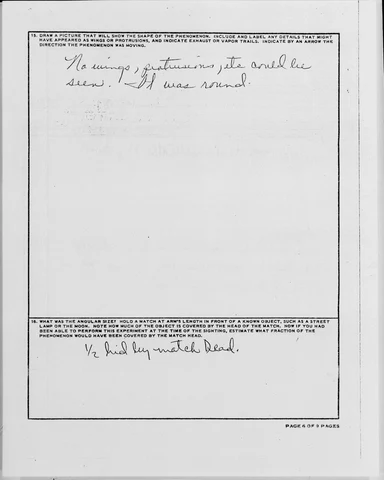 15. DRAW A PICTURE THAT WILL SHOW THE SHAPE OF THE PHENOMENON. INCLUDE AND LABEL ANY DETAILS THAT MIGHT
HAVE APPEARED AS WINGS OR PROTRUSIONS, AND INDICATE EXHAUST OR VAPOR TRAILS. INDICATE BY AN ARROW THE
DIRECTION THE PHENOMENON WAS MOVING.
No wings, protrusions, etc could be
seen. It was round.
16. WHAT WAS THE ANGULAR SIZE? HOLD A MATCH AT ARM'S LENGTH IN FRONT OF A KNOWN OBJECT, SUCH AS A STREET
LAMP OR THE MOON. NOTE HOW MUCH OF THE OBJECT IS COVERED BY THE HEAD OF THE MATCH. NOW IF YOU HAD
BEEN ABLE TO PERFORM THIS EXPERIMENT AT THE TIME OF THE SIGHTING, ESTIMATE WHAT FRACTION OF THE
PHENOMENON WOULD HAVE BEEN COVERED BY THE MATCH HEAD.
1/2 hid by match head.
PAGE 6 OF 9 PAGES